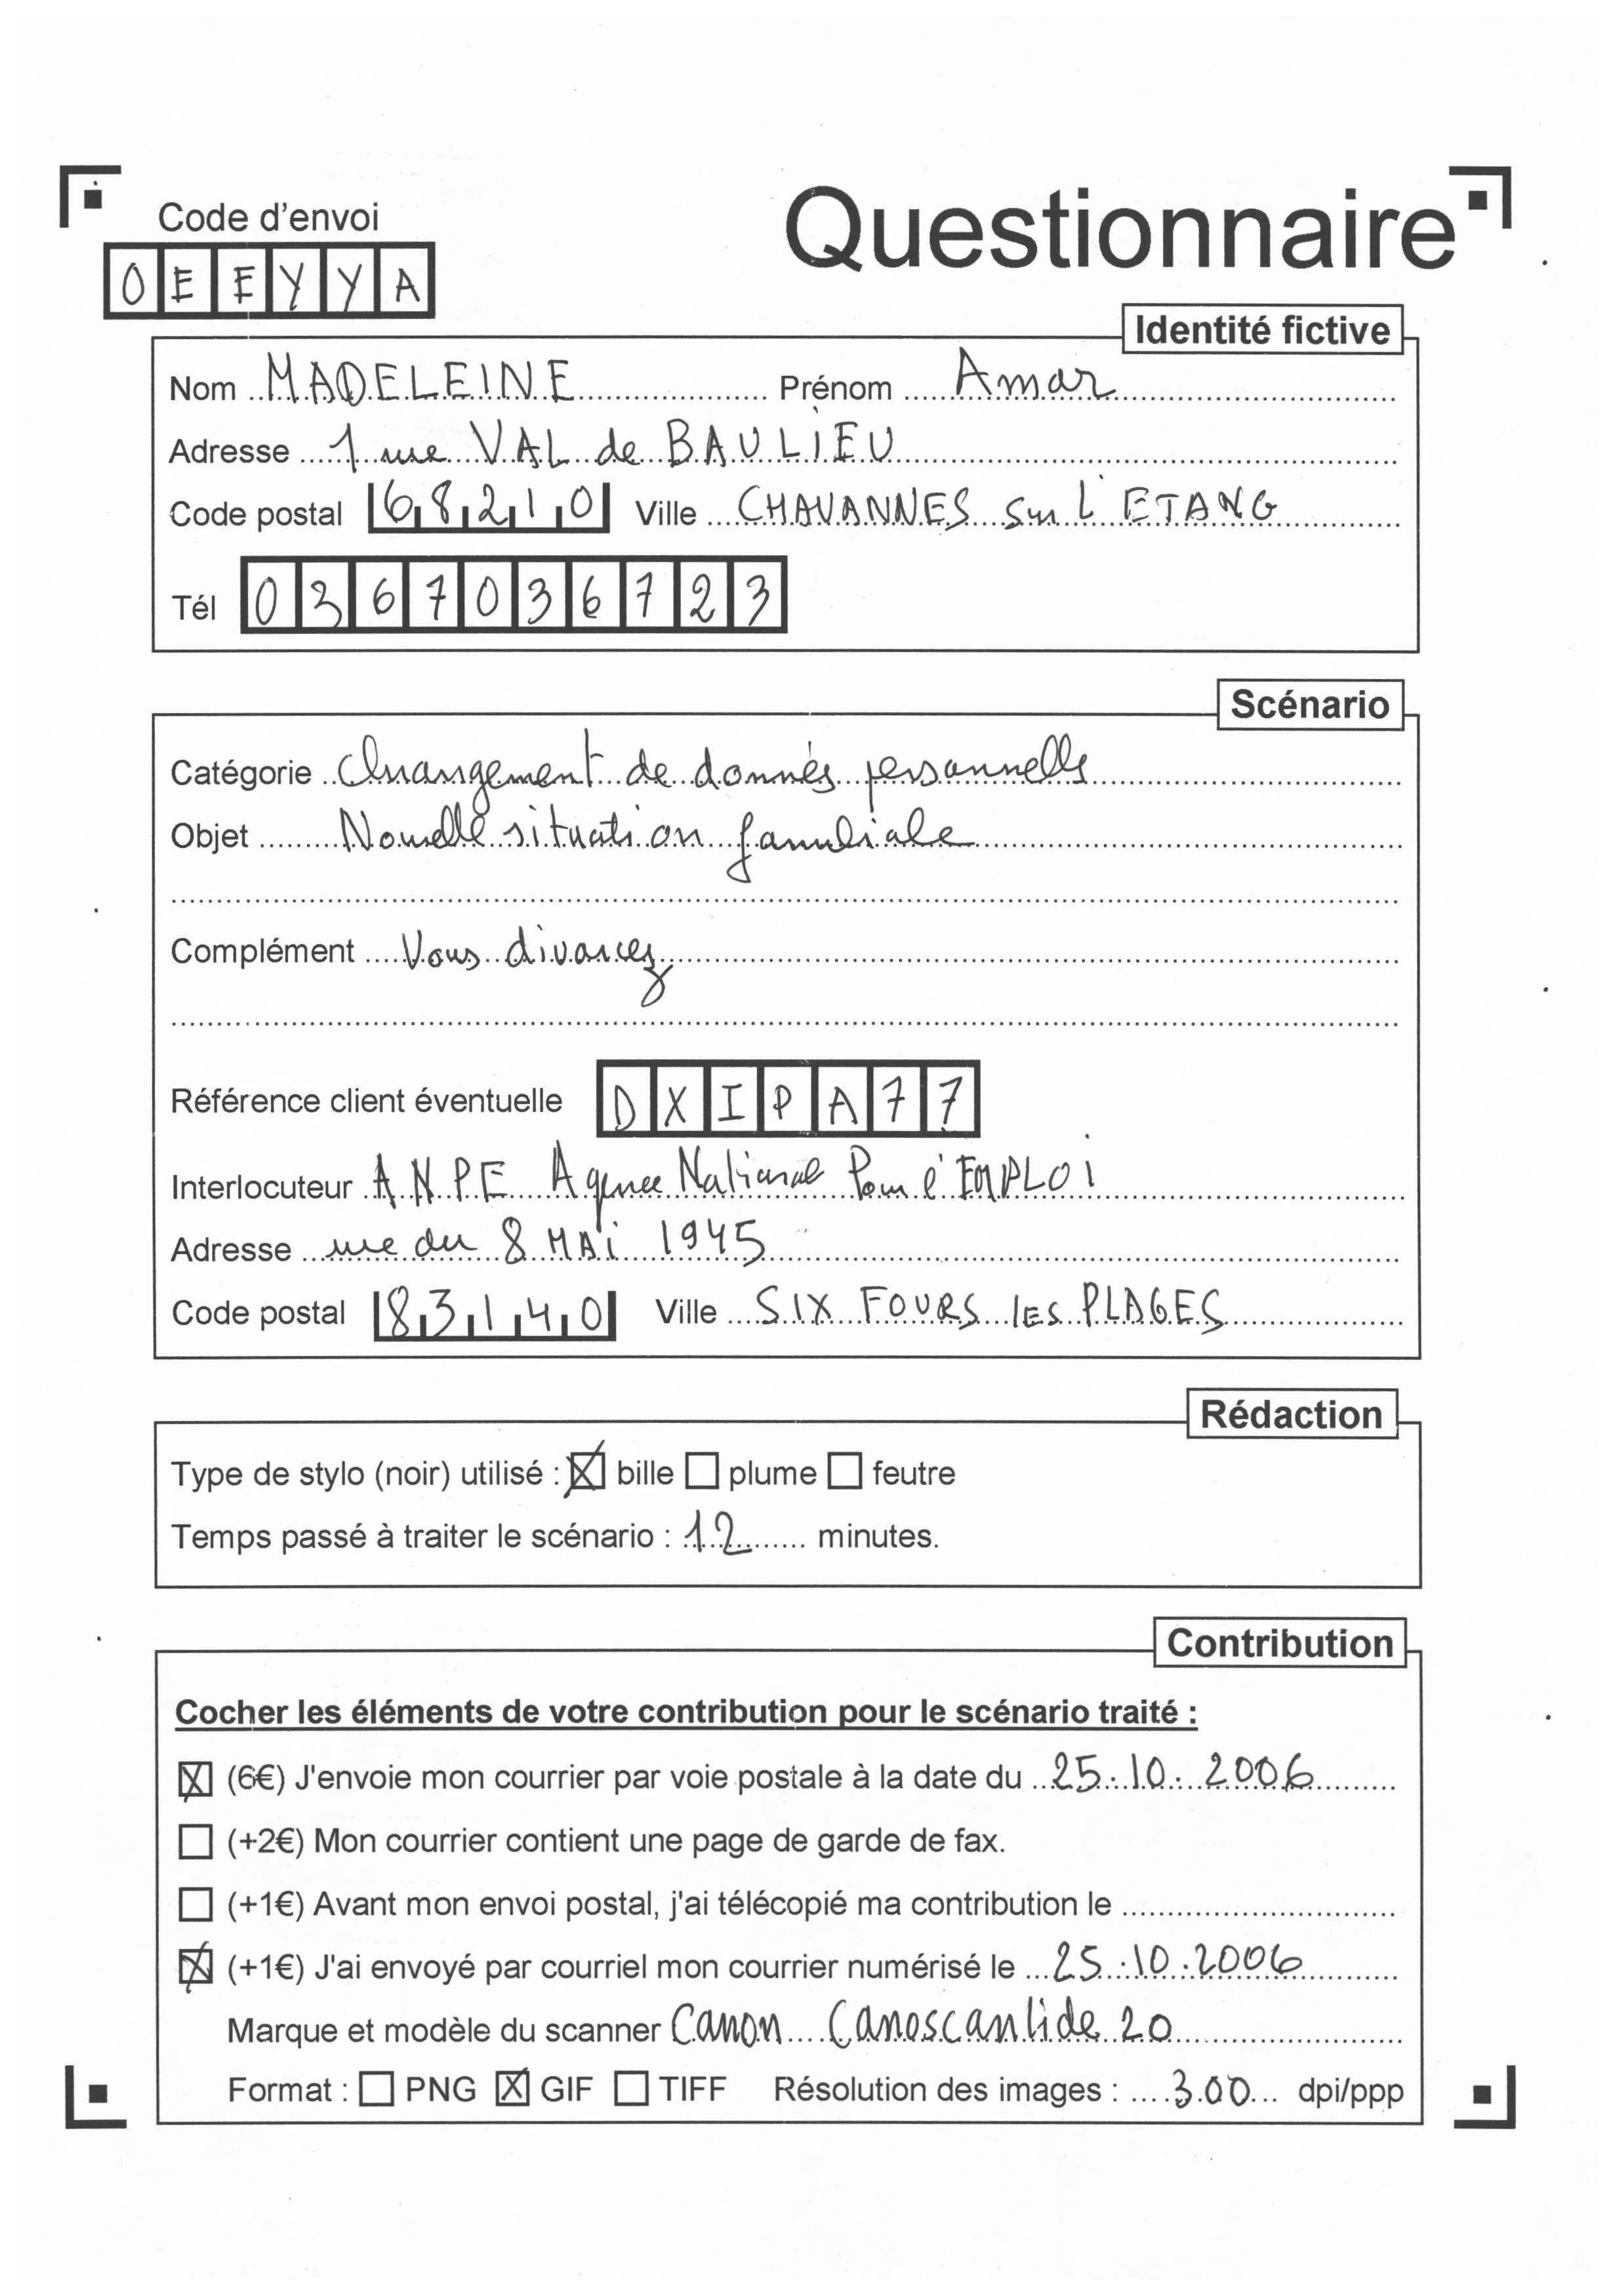 Code d'envoi
Questionnaire
O E E Y Y A
Identité fictive
Nom MADELEINE Prénom Amar
Adresse 1 rue VAL de BAULIEU
Code postal 68210 Ville CHAVANNES sur L'ETANG
Tél 0367036723
Scénario
Catégorie Changement de donnés personnelle
Objet Nouvelle situation familiale
Complément Vous divorcez
Référence client éventuelle DXIPA77
Interlocuteur A.N.P.E Agence National Pour l'EMPLOI
Adresse rue du 8 MAi 1945
Code postal 83140 Ville SIX FOURS lES PLAGES
Rédaction
Type de stylo (noir) utilisé : ☒ bille ☐ plume ☐ feutre
Temps passé à traiter le scénario : 12 minutes.
Contribution
Cocher les éléments de votre contribution pour le scénario traité :
☒ (6€) J'envoie mon courrier par voie postale à la date du 25.10.2006
☐ (+2€) Mon courrier contient une page de garde de fax.
☐ (+1€) Avant mon envoi postal, j'ai télécopié ma contribution le
☒ (+1€) J'ai envoyé par courriel mon courrier numérisé le 25.10.2006
Marque et modèle du scanner Canon Canoscan lide 20
Format : ☐ PNG ☒ GIF ☐ TIFF Résolution des images : 300 dpi/ppp